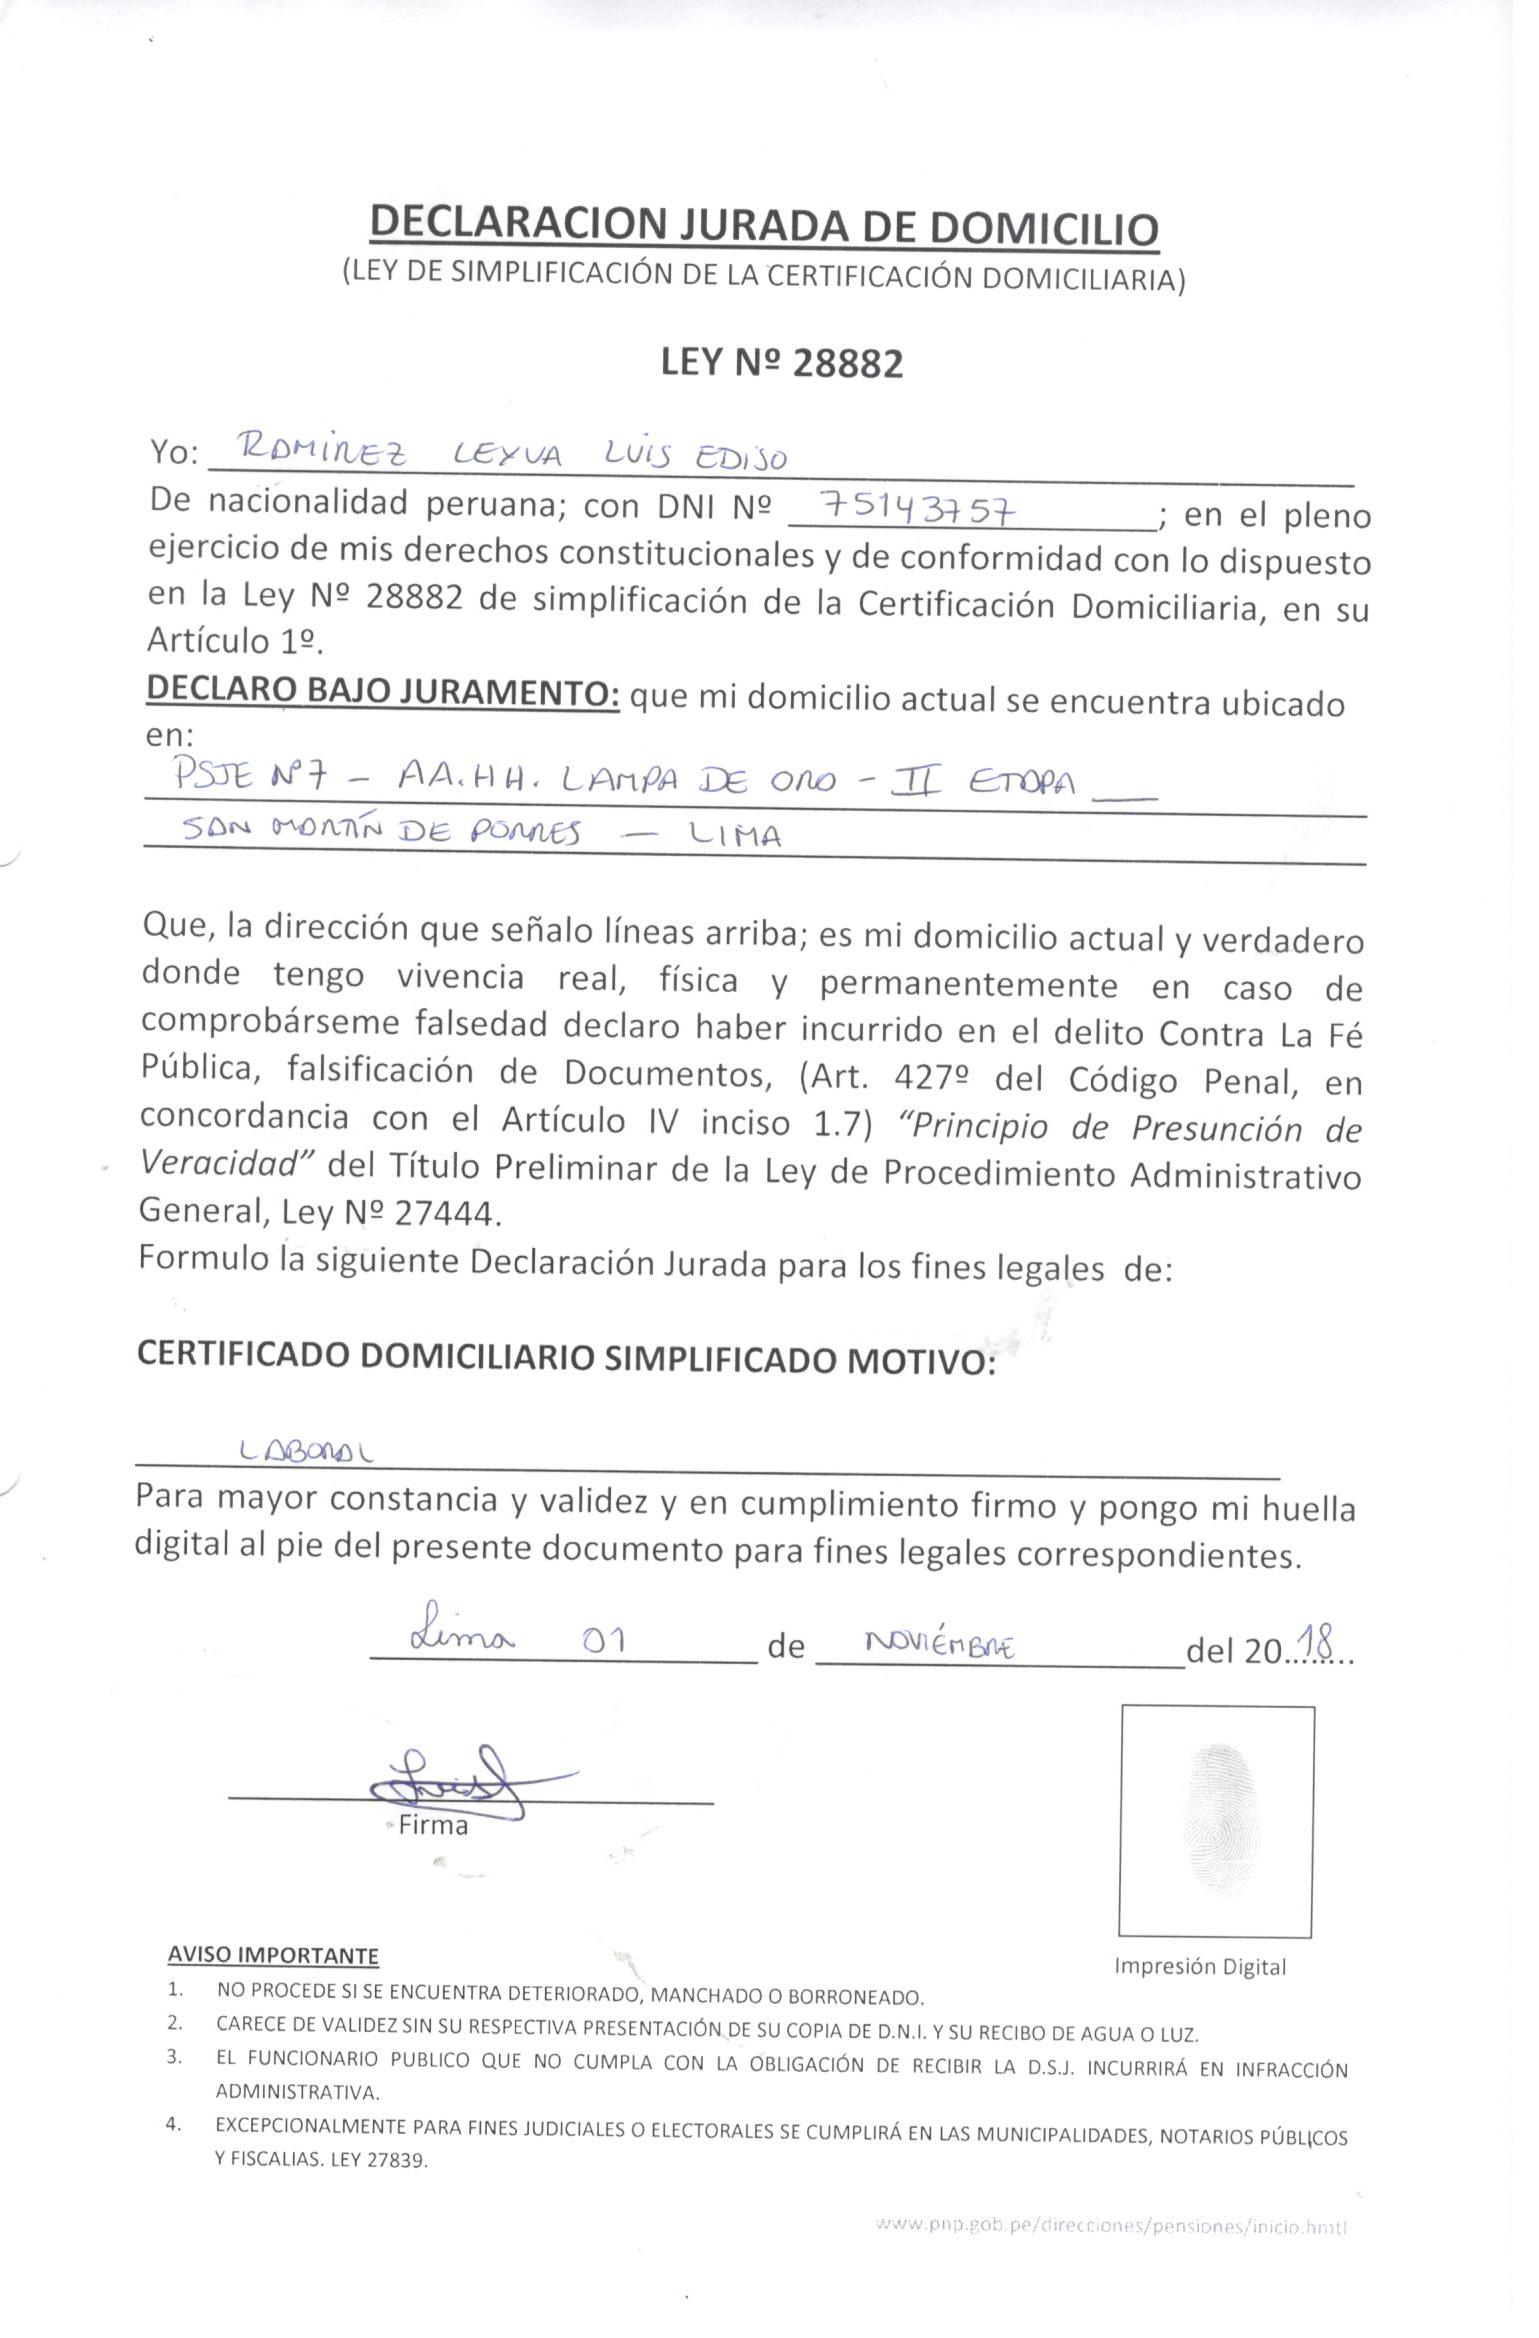 DECLARACION JURADA DE DOMICILIO
(LEY DE SIMPLIFICACIÓN DE LA CERTIFICACIÓN DOMICILIARIA)
LEY Nº 28882
Yo: RAMIREZ LEYVA LUIS EDISO
De nacionalidad peruana; con DNI Nº 75143757; en el pleno
ejercicio de mis derechos constitucionales y de conformidad con lo dispuesto
en la Ley Nº 28882 de simplificación de la Certificación Domiciliaria, en su
Artículo 1º.
DECLARO BAJO JURAMENTO: que mi domicilio actual se encuentra ubicado
en:
PSJE Nº7 - AA.HH. LAMPA DE ORO - II ETAPA
SAN MARTÍN DE PORRES - LIMA
Que, la dirección que señalo líneas arriba; es mi domicilio actual y verdadero
donde tengo vivencia real, física y permanentemente en caso de
comprobárseme falsedad declaro haber incurrido en el delito Contra La Fé
Pública, falsificación de Documentos, (Art. 427º del Código Penal, en
concordancia con el Artículo IV inciso 1.7) “Principio de Presunción de
Veracidad” del Título Preliminar de la Ley de Procedimiento Administrativo
General, Ley Nº 27444.
Formulo la siguiente Declaración Jurada para los fines legales de:
CERTIFICADO DOMICILIARIO SIMPLIFICADO MOTIVO:
LABORAL
Para mayor constancia y validez y en cumplimiento firmo y pongo mi huella
digital al pie del presente documento para fines legales correspondientes.
Lima 01 de NOVIÉMBRE del 20.18...
Firma
Impresión Digital
AVISO IMPORTANTE
1. NO PROCEDE SI SE ENCUENTRA DETERIORADO, MANCHADO O BORRONEADO.
2. CARECE DE VALIDEZ SIN SU RESPECTIVA PRESENTACIÓN DE SU COPIA DE D.N.I. Y SU RECIBO DE AGUA O LUZ.
3. EL FUNCIONARIO PUBLICO QUE NO CUMPLA CON LA OBLIGACIÓN DE RECIBIR LA D.S.J. INCURRIRÁ EN INFRACCIÓN
ADMINISTRATIVA.
4. EXCEPCIONALMENTE PARA FINES JUDICIALES O ELECTORALES SE CUMPLIRÁ EN LAS MUNICIPALIDADES, NOTARIOS PÚBLICOS
Y FISCALIAS. LEY 27839.
www.pnp.gob.pe/direcciones/pensiones/inicio.hmtl